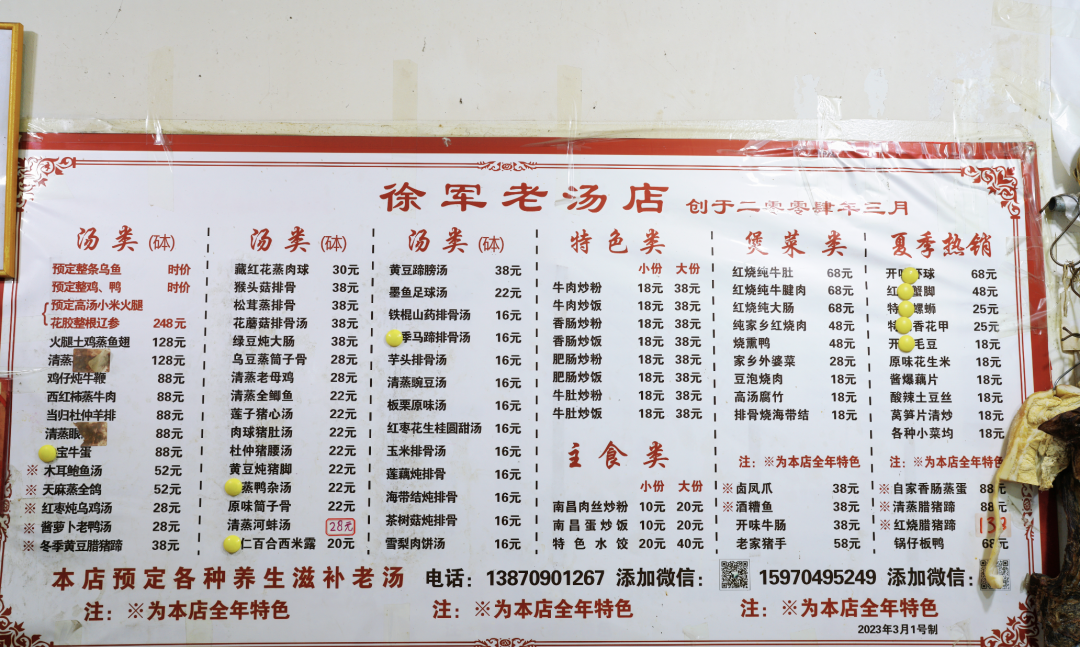 徐军老汤店 创于二零零肆年三月
汤类(砵)
预定整条乌鱼 时价
预定整鸡、鸭 时价
预定高汤小米火腿
花胶整根辽参 248元
火腿土鸡蒸鱼翅 128元
清蒸 128元
鸡仔炖牛鞭 88元
西红柿蒸牛肉 88元
当归杜仲羊排 88元
清蒸眼 88元
宝牛蛋 88元
※ 木耳鲍鱼汤 52元
※ 天麻蒸全鸽 52元
※ 红枣炖乌鸡汤 28元
※ 酱萝卜老鸭汤 28元
※ 冬季黄豆腊猪蹄 38元
汤类(砵)
藏红花蒸肉球 30元
猴头菇排骨 38元
松茸蒸排骨 38元
花蘑菇排骨汤 38元
绿豆炖大肠 38元
乌豆蒸筒子骨 28元
清蒸老母鸡 28元
清蒸全鲫鱼 22元
莲子猪心汤 22元
肉球猪肚汤 22元
杜仲猪腰汤 22元
黄豆炖猪脚 22元
蒸鸭杂汤 22元
原味筒子骨 22元
清蒸河蚌汤 28元
仁百合西米露 20元
汤类(砵)
黄豆蹄膀汤 38元
墨鱼足球汤 22元
铁棍山药排骨汤 16元
季马蹄排骨汤 16元
芋头排骨汤 16元
清蒸豌豆汤 16元
板栗原味汤 16元
红枣花生桂圆甜汤 16元
玉米排骨汤 16元
莲藕炖排骨 16元
海带结炖排骨 16元
茶树菇炖排骨 16元
雪梨肉饼汤 16元
特色类
小份 大份
牛肉炒粉 18元 38元
牛肉炒饭 18元 38元
香肠炒粉 18元 38元
香肠炒饭 18元 38元
肥肠炒粉 18元 38元
肥肠炒饭 18元 38元
牛肚炒粉 18元 38元
牛肚炒饭 18元 38元
主食类
小份 大份
南昌肉丝炒粉 10元 20元
南昌蛋炒饭 10元 20元
特色水饺 20元 40元
煲菜类
红烧炖牛肚 68元
红烧炖牛腱肉 68元
红烧炖大肠 68元
炖家乡红烧肉 48元
烧熏鸭 48元
家乡外婆菜 28元
豆泡烧肉 18元
高汤腐竹 18元
排骨烧海带结 18元
注：※为本店全年特色
※ 卤凤爪 38元
※ 酒糟鱼 38元
开味牛肠 38元
老家猪手 58元
夏季热销
开 环球 68元
红 蟹脚 48元
特 螺蛳 25元
特 香花甲 25元
开 毛豆 18元
原味花生米 18元
酱爆藕片 18元
酸辣土豆丝 18元
莴笋片清炒 18元
各种小菜均 18元
注：※为本店全年特色
※ 自家香肠蒸蛋 88
※ 清蒸腊猪蹄 88元
※ 红烧腊猪蹄
锅仔板鸭 68元
本店预定各种养生滋补老汤 电话：13870901267 添加微信： 15970495249 添加微信：
注：※为本店全年特色 注：※为本店全年特色 注：※为本店全年特色
2023年3月1号制